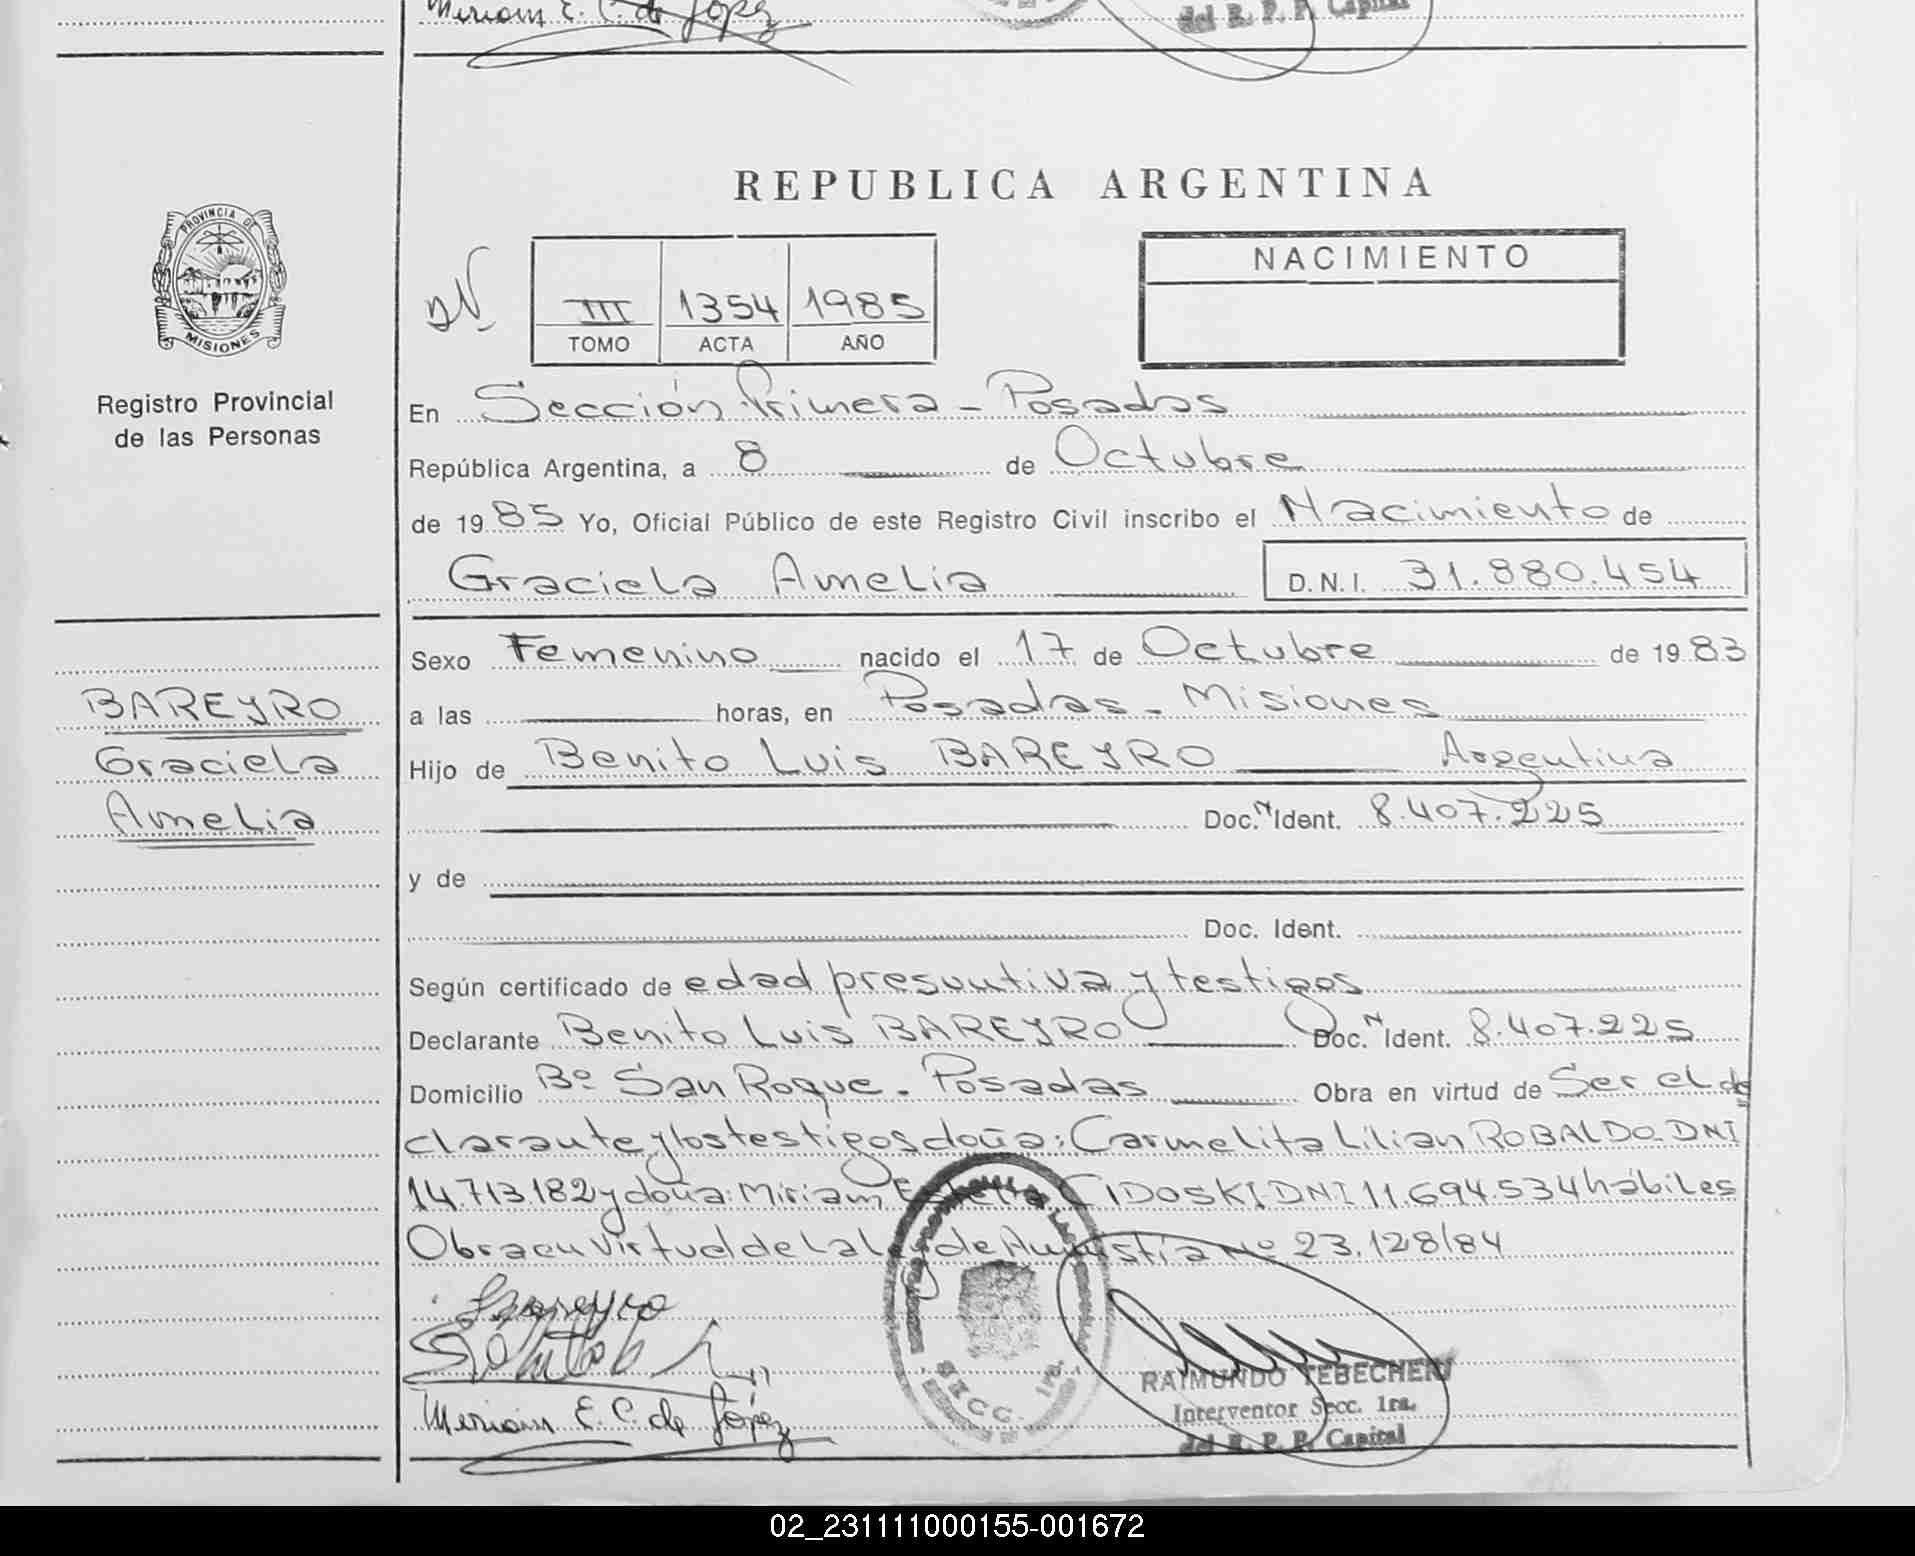 Miriam E. C. de López
del R. P. P. Capital
REPUBLICA ARGENTINA
PROVINCIA DE
MISIONES
Registro Provincial
de las Personas
III 1354 1985
TOMO ACTA AÑO
NACIMIENTO
En Sección Primera - Posadas
República Argentina, a 8 de Octubre
de 1985 Yo, Oficial Público de este Registro Civil inscribo el Nacimiento de
Graciela Amelia D.N.I. 31.880.454
BAREYRO
Graciela
Amelia
Sexo Femenino nacido el 17 de Octubre de 1983
a las horas, en Posadas - Misiones
Hijo de Benito Luis BAREYRO Argentina
Doc. N Ident. 8.407.225
y de
Doc. Ident.
Según certificado de edad presuntiva y testigos
Declarante Benito Luis BAREYRO Doc. N Ident. 8.407.225
Domicilio Bº San Roque - Posadas Obra en virtud de Ser el de
clarante y los testigos doña: Carmelita Lilian ROBALDO DNI
14.713.182 y doña: Miriam CIDOSKI DNI 11.694.534 hábiles
Obra en virtud de la Ley de Amnistía Nº 23.128/84
Bareyro
Miriam E. C. de López
SECC. 1ra.
RAIMUNDO TEBECHERI
Interventor Secc. 1ra.
del R. P. P. Capital
02_231111000155-001672